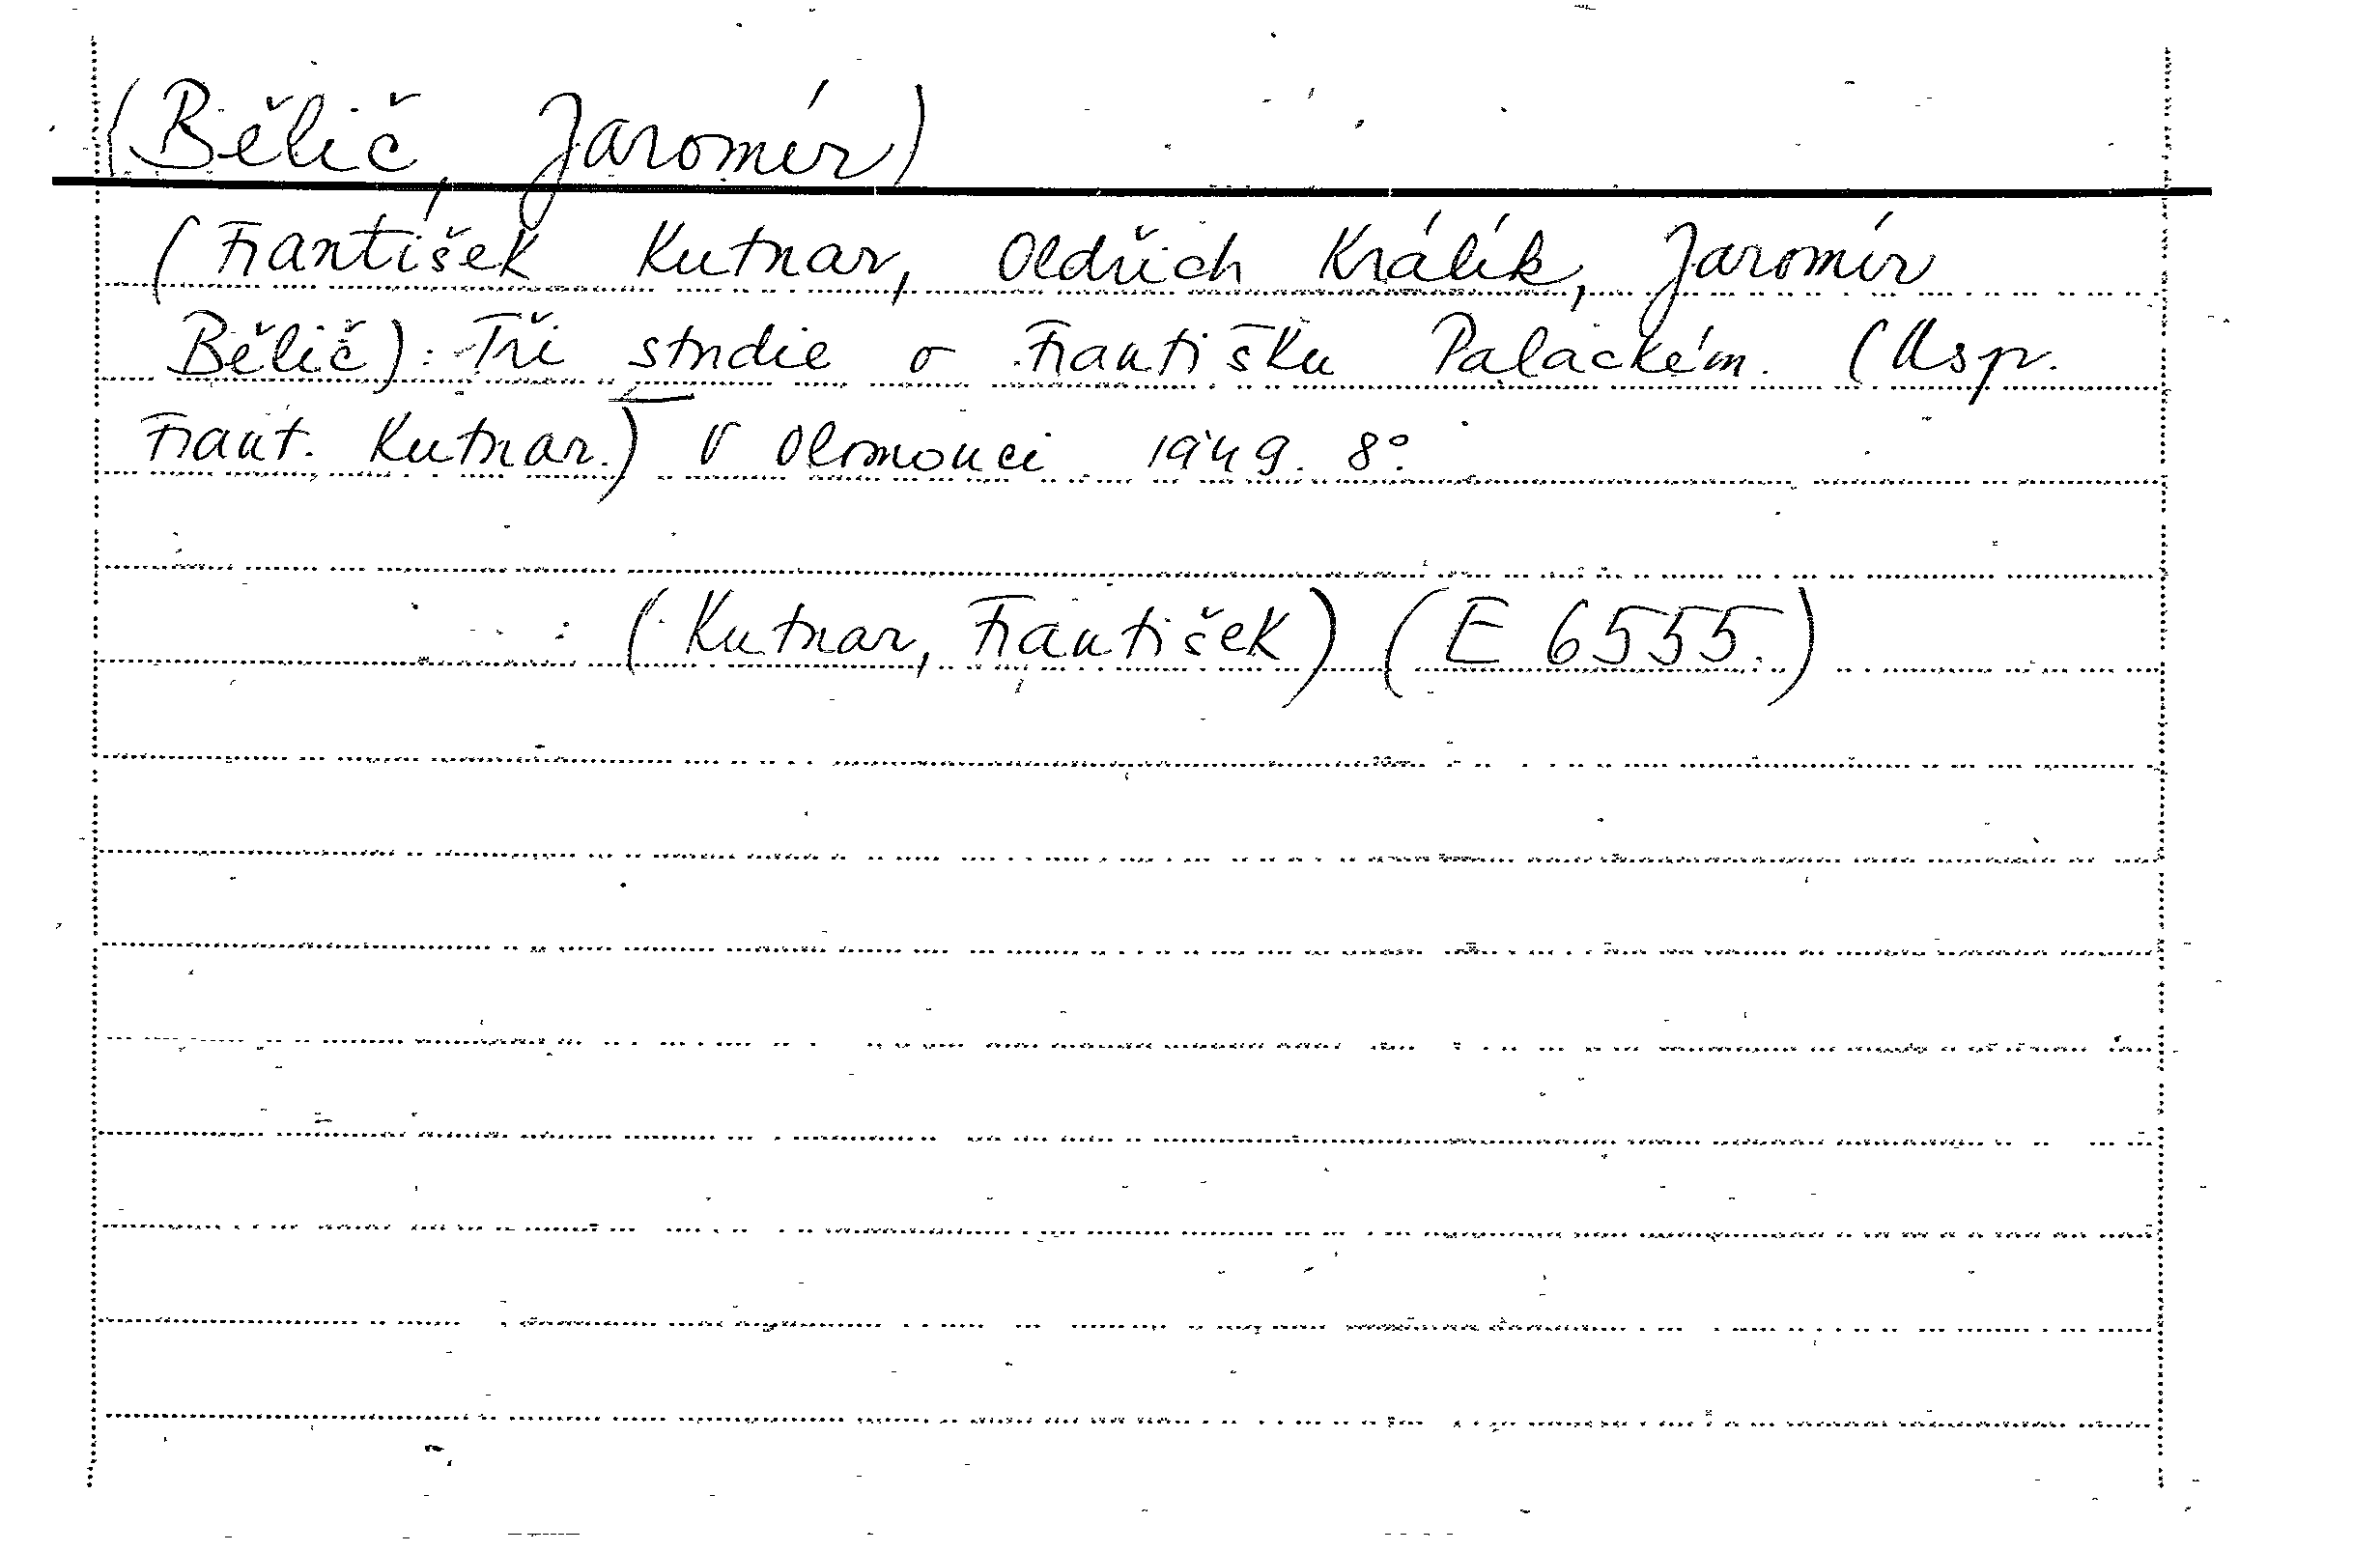 (Bělič, Jaromír)
(František Kutnar, Oldřich Králík, Jaromír
Bělič): Tři studie o Františku Palackém. (Usp.
Frant. Kutnar.) V Olomouci 1949. 8°.
: (Kutnar, František) (E 6555.)